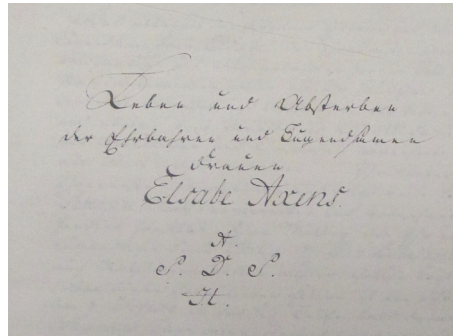 Leben und Absterben
der Ehrbahren und Tugendsamen
Frauen
Elsabe Axens.
A.
P. D. P.
H.